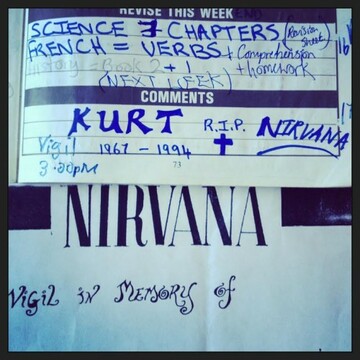 REVISE THIS WEEK
SCIENCE 7 CHAPTERS (Revision Sheet)
FRENCH = VERBS + Comprehension
History = Book 2 + 1 + Homework
(NEXT WEEK)
COMMENTS
KURT R.I.P. NIRVANA
Vigil 1967 - 1994
3.30pm
73
NIRVANA
VIGIL IN MEMORY OF